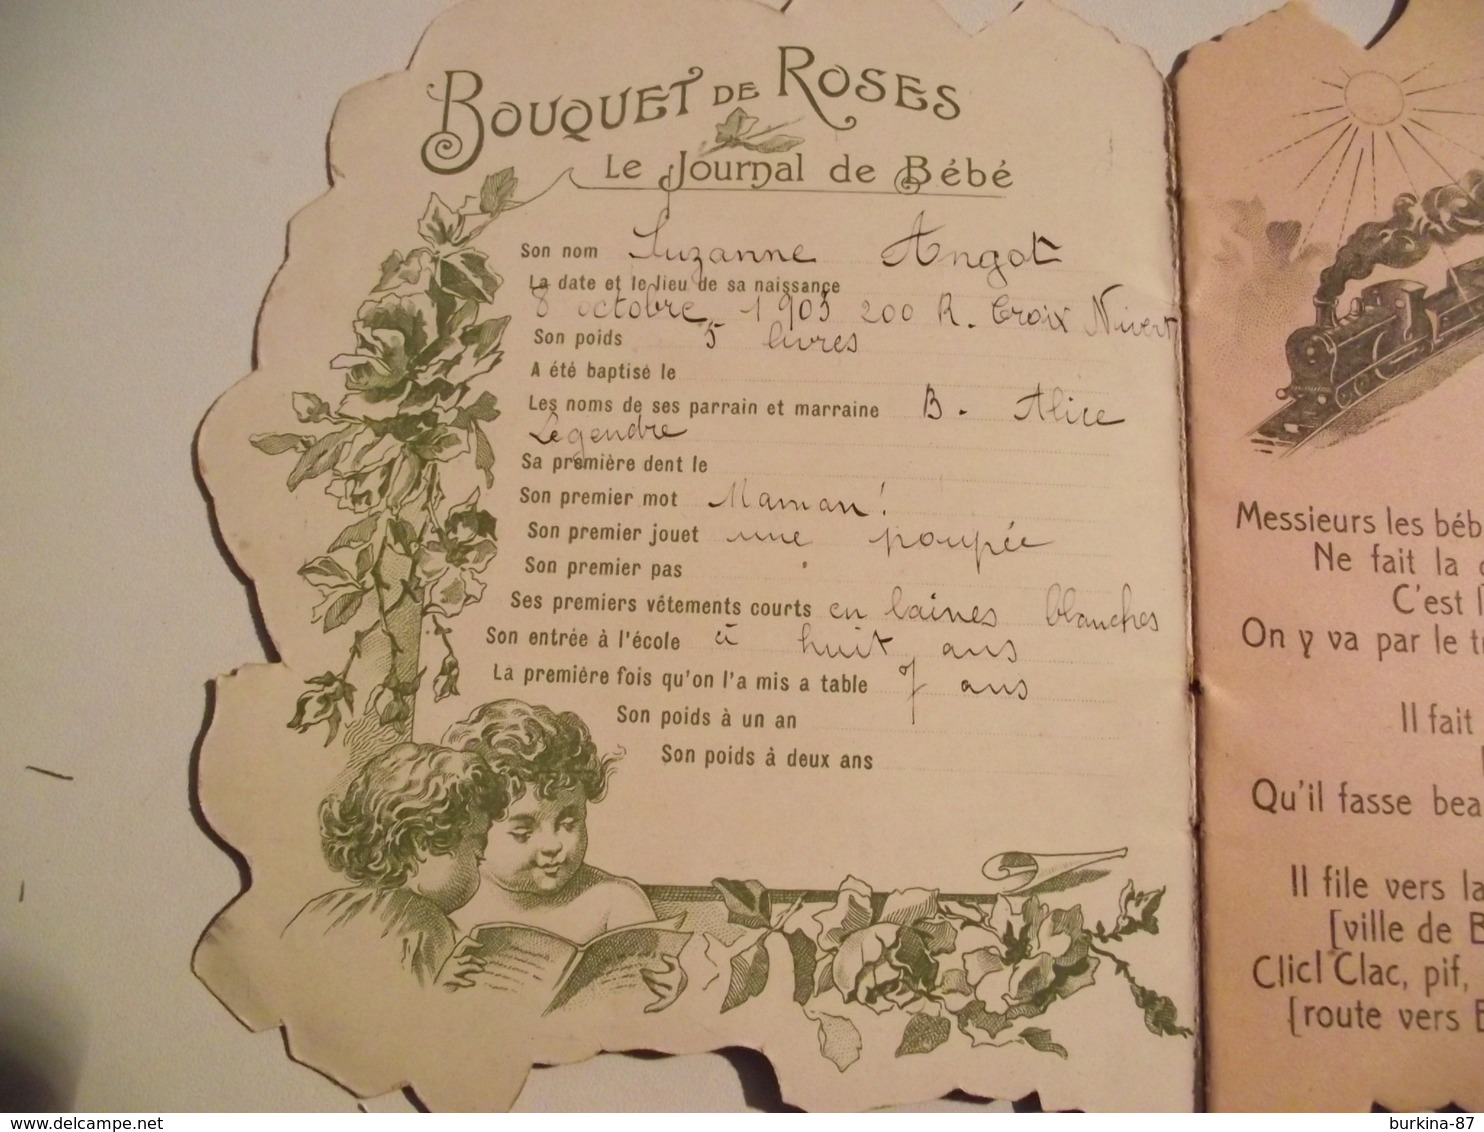 BOUQUET DE ROSES
Le Journal de Bébé
Son nom Suzanne Angot
La date et le lieu de sa naissance
8 octobre 1903 200 R. Croix Nivert
Son poids 5 livres
A été baptisé le
Les noms de ses parrain et marraine B. Alice
Legendre
Sa première dent le
Son premier mot Maman!
Son premier jouet une poupée
Son premier pas
Ses premiers vêtements courts en laines blanches
Son entrée à l'école à huit ans
La première fois qu'on l'a mis a table 7 ans
Son poids à un an
Son poids à deux ans
Messieurs les béb
Ne fait la
C'est l
On y va par le tr
Il fait
Qu'il fasse bea
Il file vers la
[ville de B
Clic! Clac, pif,
[route vers B
burkina-87